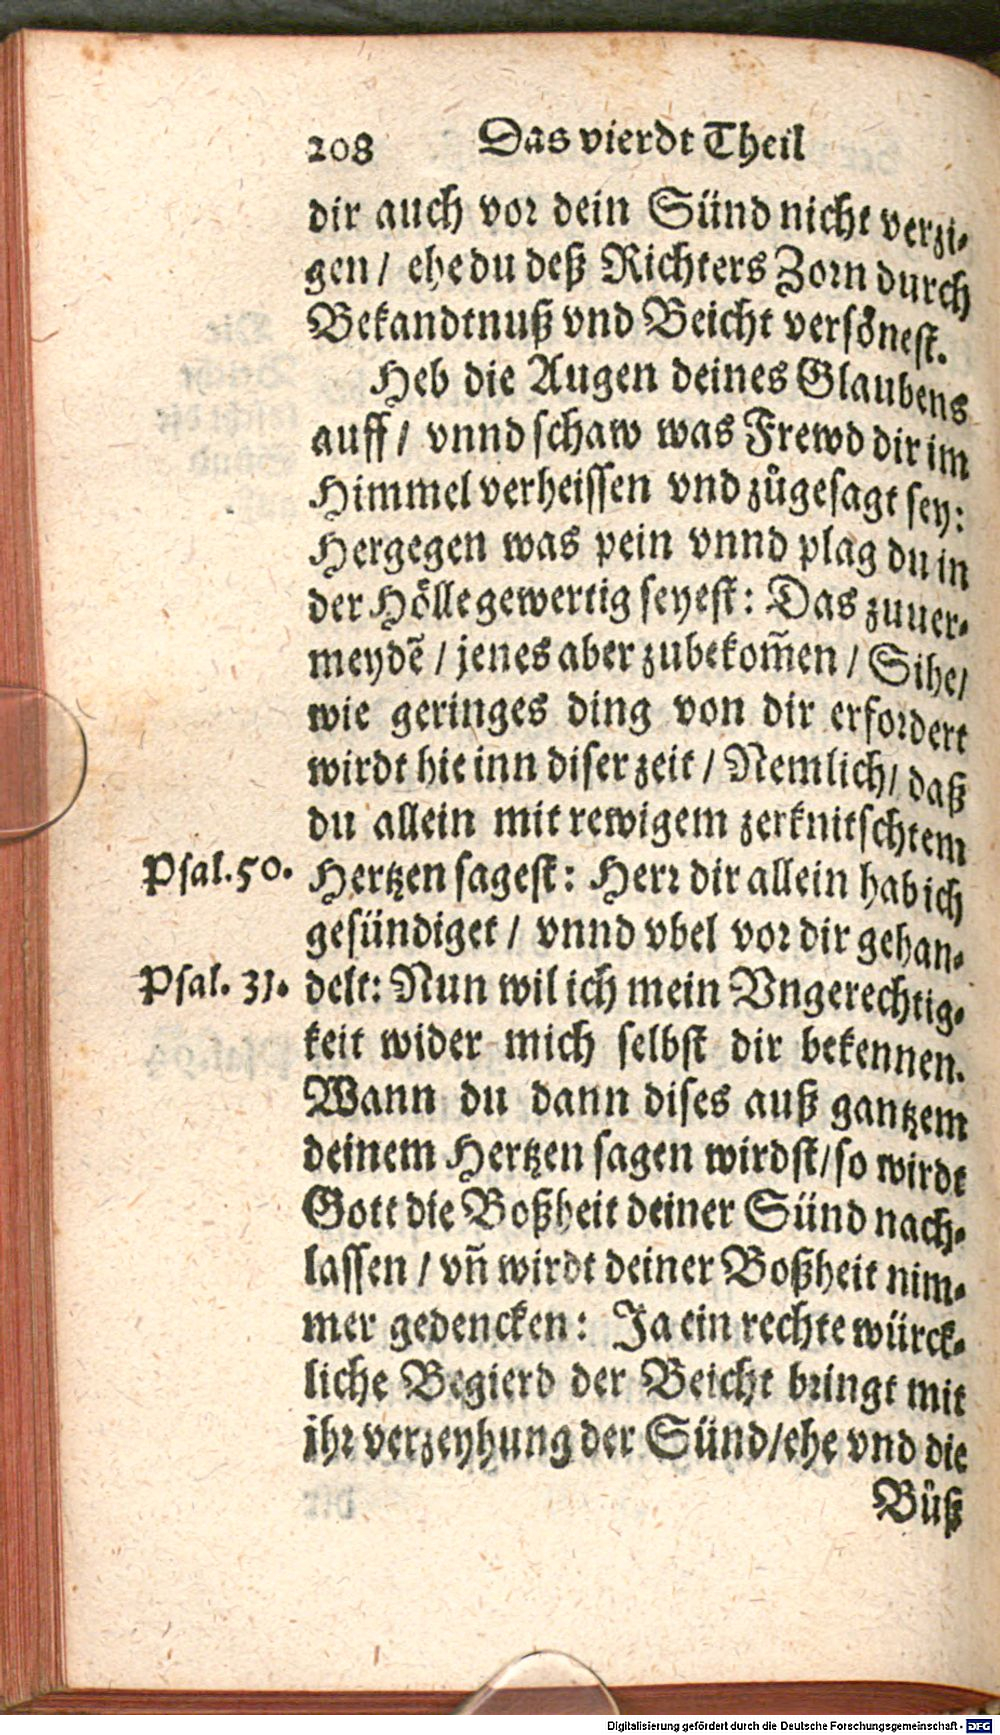 208 Das vierdt Theil
dir auch vor dein Sünd nicht verzi⸗
gen / ehe du deß Richters Zorn durch
Bekandtnuß vnd Beicht versönest.
Heb die Augen deines Glaubens
auff / vnnd schaw was Frewd dir im
Himmel verheissen vnd zůgesagt sey:
Hergegen was pein vnnd plag du in
der Hölle gewertig seyest: Das zuuer⸗
meydẽ / jenes aber zubekom̃en / Sihe /
wie geringes ding von dir erfordert
wirdt hie inn diser zeit / Nemlich / daß
du allein mit rewigem zerknitschtem
Psal. 50. Hertzen sagest: Herr dir allein hab ich
gesündiget / vnnd vbel vor dir gehan⸗
Psal. 31. delt: Nun wil ich mein Vngerechtig⸗
keit wider mich selbst dir bekennen.
Wann du dann dises auß gantzem
deinem Hertzen sagen wirdst / so wirdt
Gott die Boßheit deiner Sünd nach⸗
lassen / vñ wirdt deiner Boßheit nim⸗
mer gedencken: Ja ein rechte würck⸗
liche Begierd der Beicht bringt mit
ihr verzeyhung der Sünd / ehe vnd die
Bůß
Digitalisierung gefördert durch die Deutsche Forschungsgemeinschaft - DFG